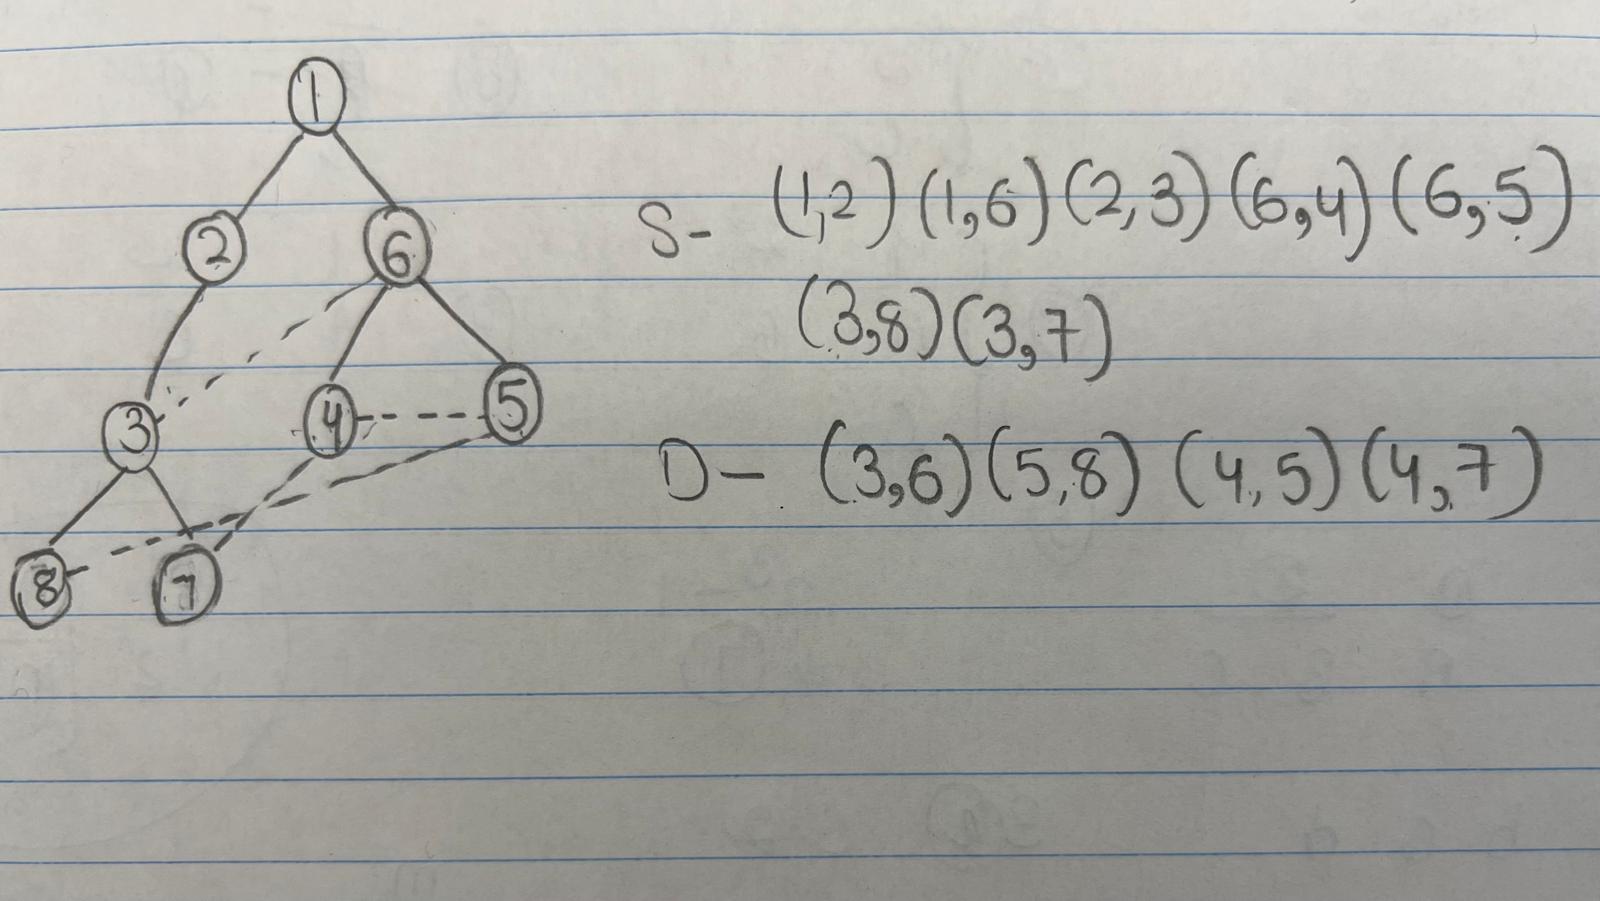 1
2 6
3 4 5
8 7
S- (1,2) (1,6) (2,3) (6,4) (6,5)
(3,8) (3,7)
D- (3,6) (5,8) (4,5) (4,7)